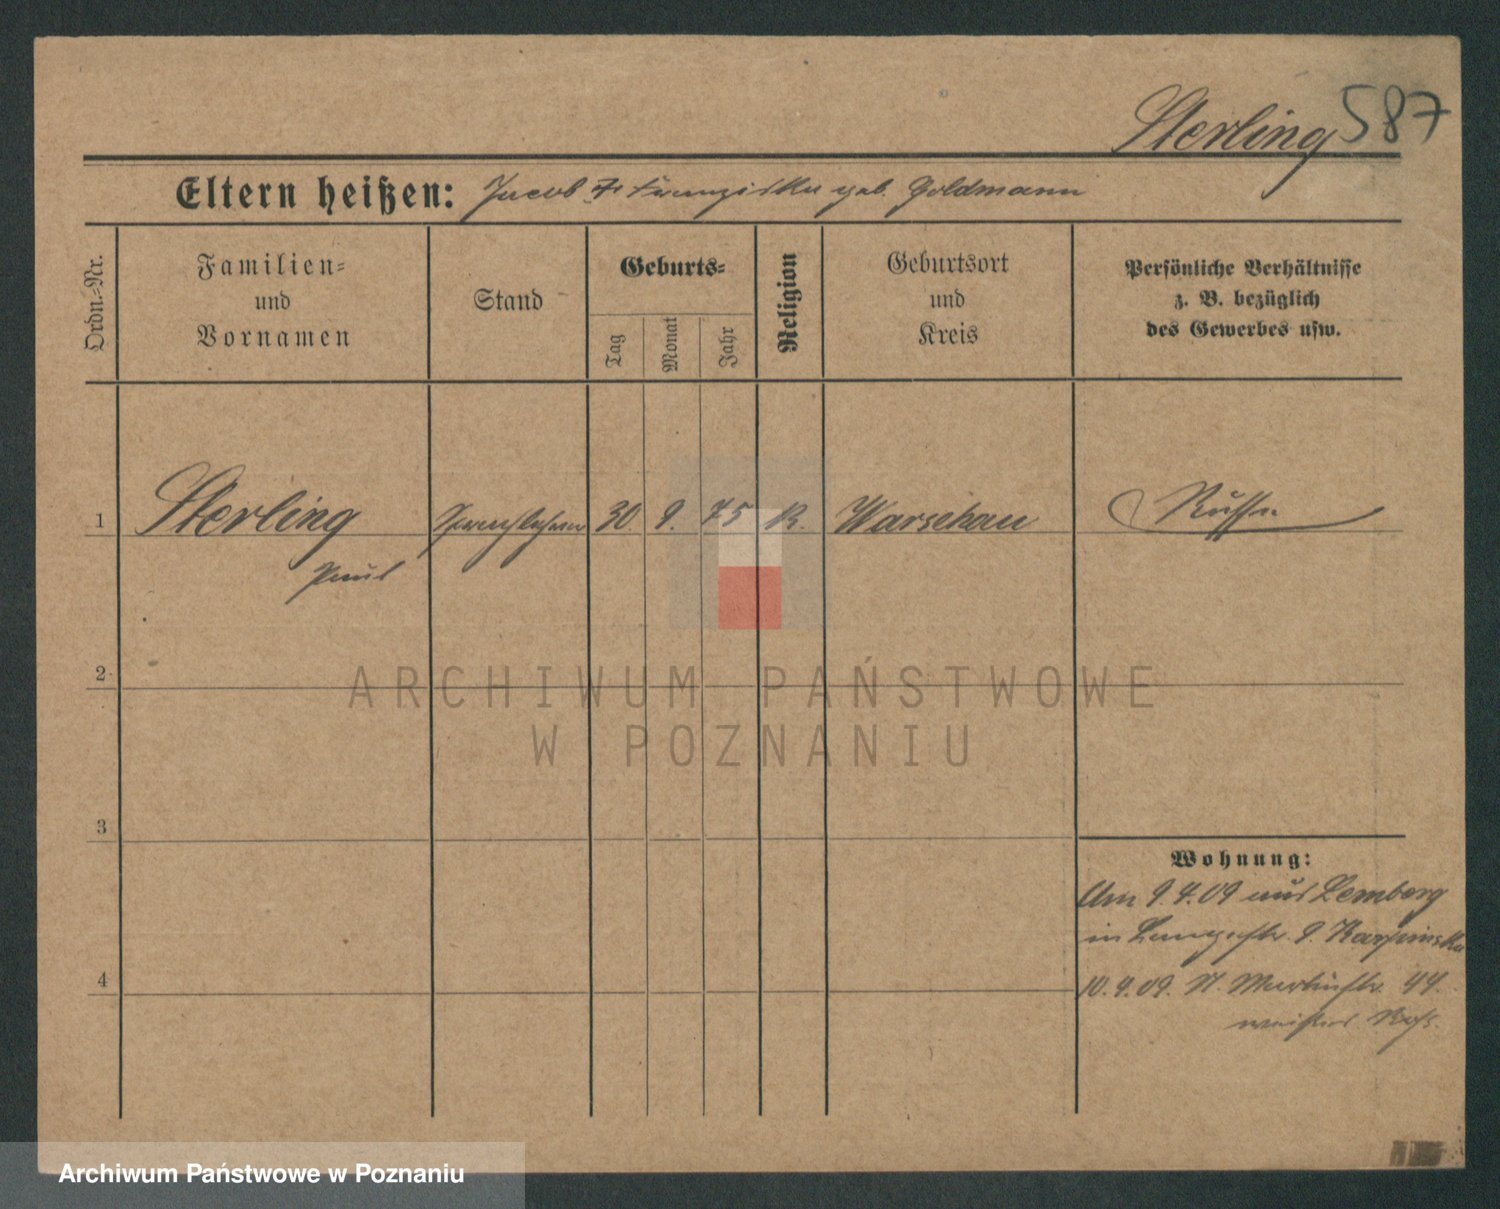 Sterling 587
Eltern heißen: Jacob & Franziska geb. Goldmann
Ordn.-Nr.
Familien-
und
Vornamen
Stand
Geburts-
Tag
Monat
Jahr
Religion
Geburtsort
und
Kreis
Persönliche Verhältnisse
z. B. bezüglich
des Gewerbes usw.
1 Sterling Sprachlehrer 30. 9. 75 R. Warschau Russe
Paul
2
ARCHIWUM PAŃSTWOWE
W POZNANIU
3
Wohnung:
Am 9.4.09 aus Lemberg
in Langestr. 9. Karpinska
4
10.4.09. St. Martinstr. 44.
Archiwum Państwowe w Poznaniu